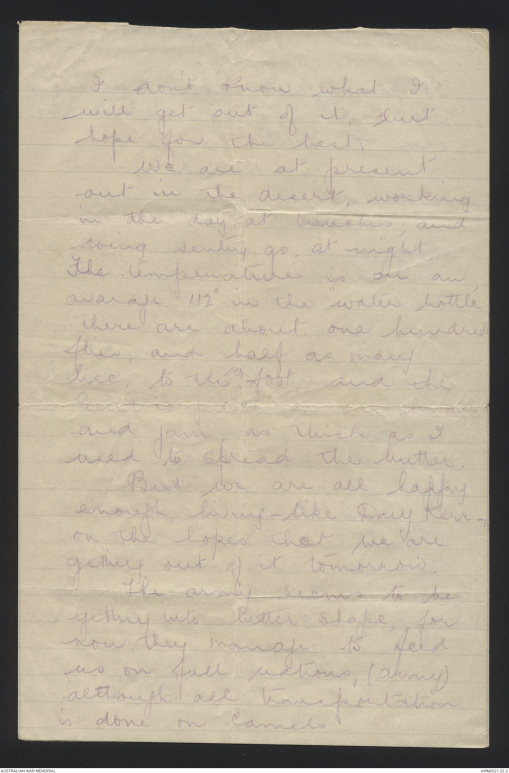 I don't know what I
will get out of it, just
hope for the best.
We are at present
out in the desert, working
in the day at trenches, and
doing sentry go, at night,
The temperature is on an
avarage 112° in the "water bottle"
there are about one hundred
flies, and half as many
lice, to the foot, and the
and jam, as thick as I
used to spread the butter.
But we are all happy
enough living - like Dary Kerr -
on the hopes that we are
getting out of it tomorrow.
The army seems to be
getting into better shape, for
now, they manage to feed
us on full rations, (army)
although all transportation
is done on Camels
AUSTRALIAN WAR MEMORIAL